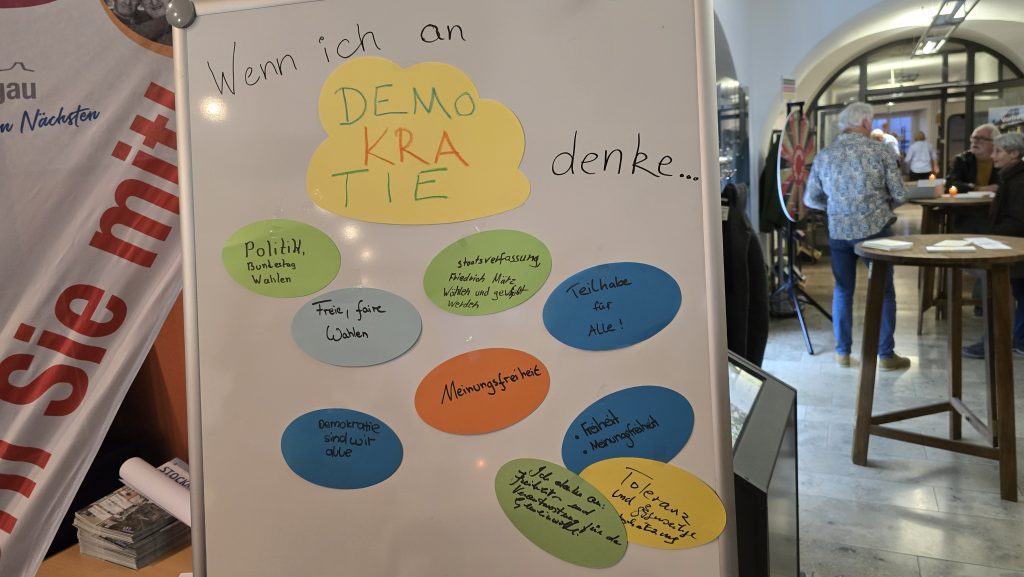 gau
Nächsten
Sie mit
Wenn ich an
DEMO
KRA
TIE
denke...
Politik,
Bundestag
Wahlen
Staatsverfassung
Friedrich Märtz
Wählen und gewählt
werden
Freie, faire
Wahlen
Teilhabe
für
Alle!
Meinungsfreiheit
Demokratie
sind wir
alle
• Freiheit
• Meinungsfreiheit
Ich denke an:
Freiheit und
Verantwortung für das
Gemeinwohl!
Toleranz
und